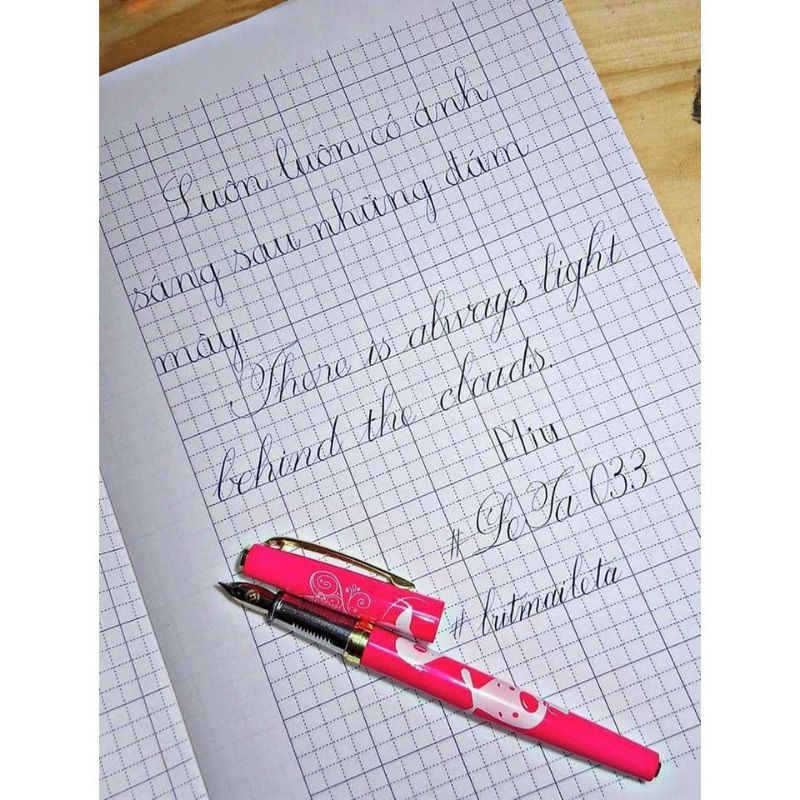 Luôn luôn có ánh
sáng sau những đám
mây
There is always light
behind the clouds.
Miu
# LeTa 033
# butmaileta